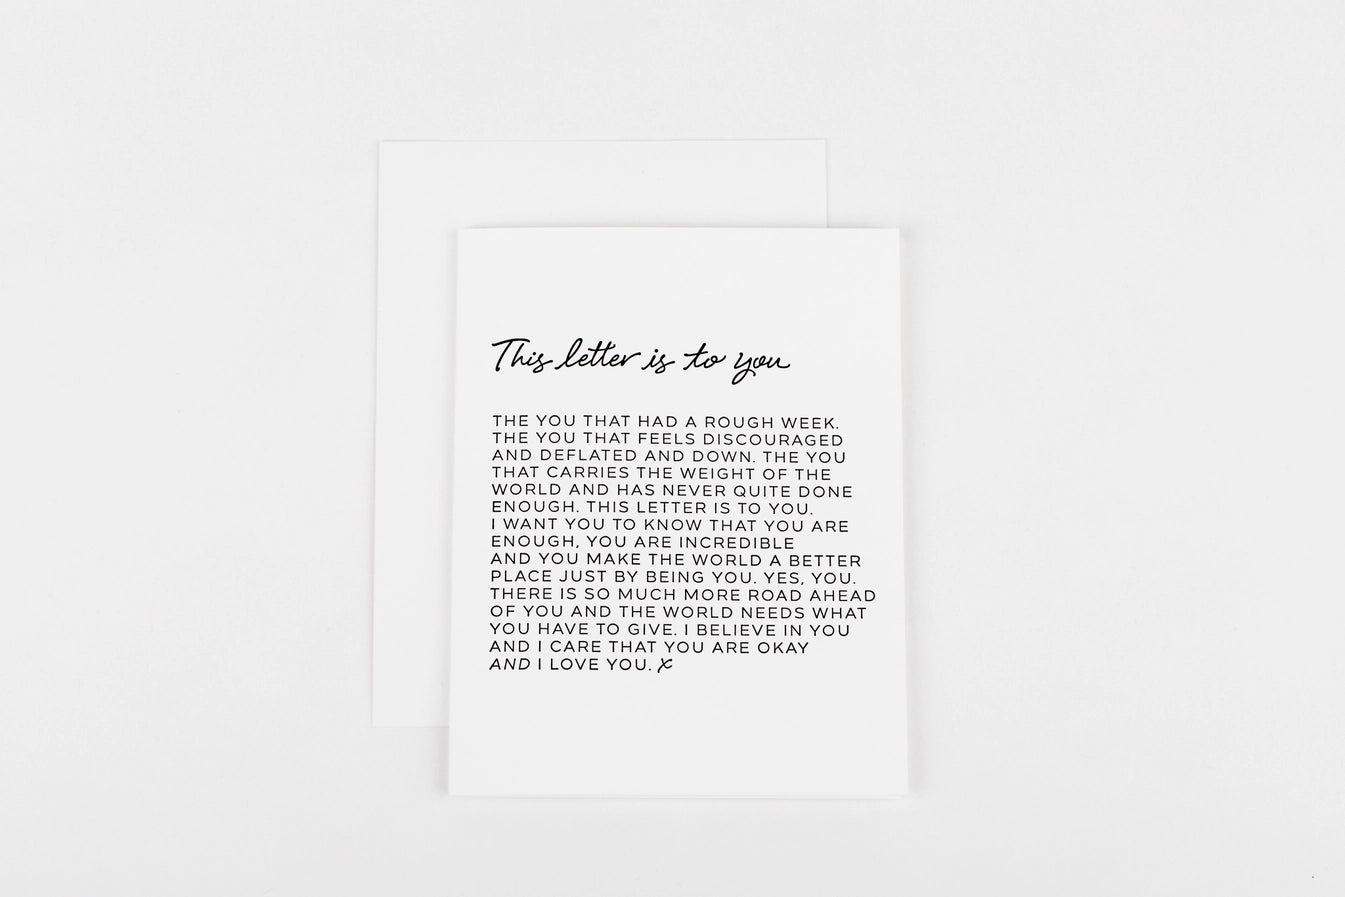 This letter is to you
THE YOU THAT HAD A ROUGH WEEK.
THE YOU THAT FEELS DISCOURAGED
AND DEFLATED AND DOWN. THE YOU
THAT CARRIES THE WEIGHT OF THE
WORLD AND HAS NEVER QUITE DONE
ENOUGH. THIS LETTER IS TO YOU.
I WANT YOU TO KNOW THAT YOU ARE
ENOUGH, YOU ARE INCREDIBLE
AND YOU MAKE THE WORLD A BETTER
PLACE JUST BY BEING YOU. YES, YOU.
THERE IS SO MUCH MORE ROAD AHEAD
OF YOU AND THE WORLD NEEDS WHAT
YOU HAVE TO GIVE. I BELIEVE IN YOU
AND I CARE THAT YOU ARE OKAY
AND I LOVE YOU. x